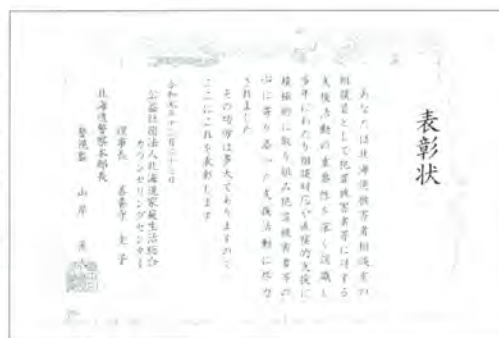 表彰状
あなたは北海道被害者相談室の
相談員として犯罪被害者等に対する
支援活動の重要性を深く認識し
多年にわたり相談対応や直接的支援に
積極的に取り組み犯罪被害者等の
心に寄り添った支援活動に尽力
されました
その功労は多大でありますので
ここにこれを表彰します
令和元年十二月二十三日
公益社団法人北海道家庭生活総合
カウンセリングセンター
理事長 善養寺 圭子
北海道警察本部長
警視監 山岸 直人